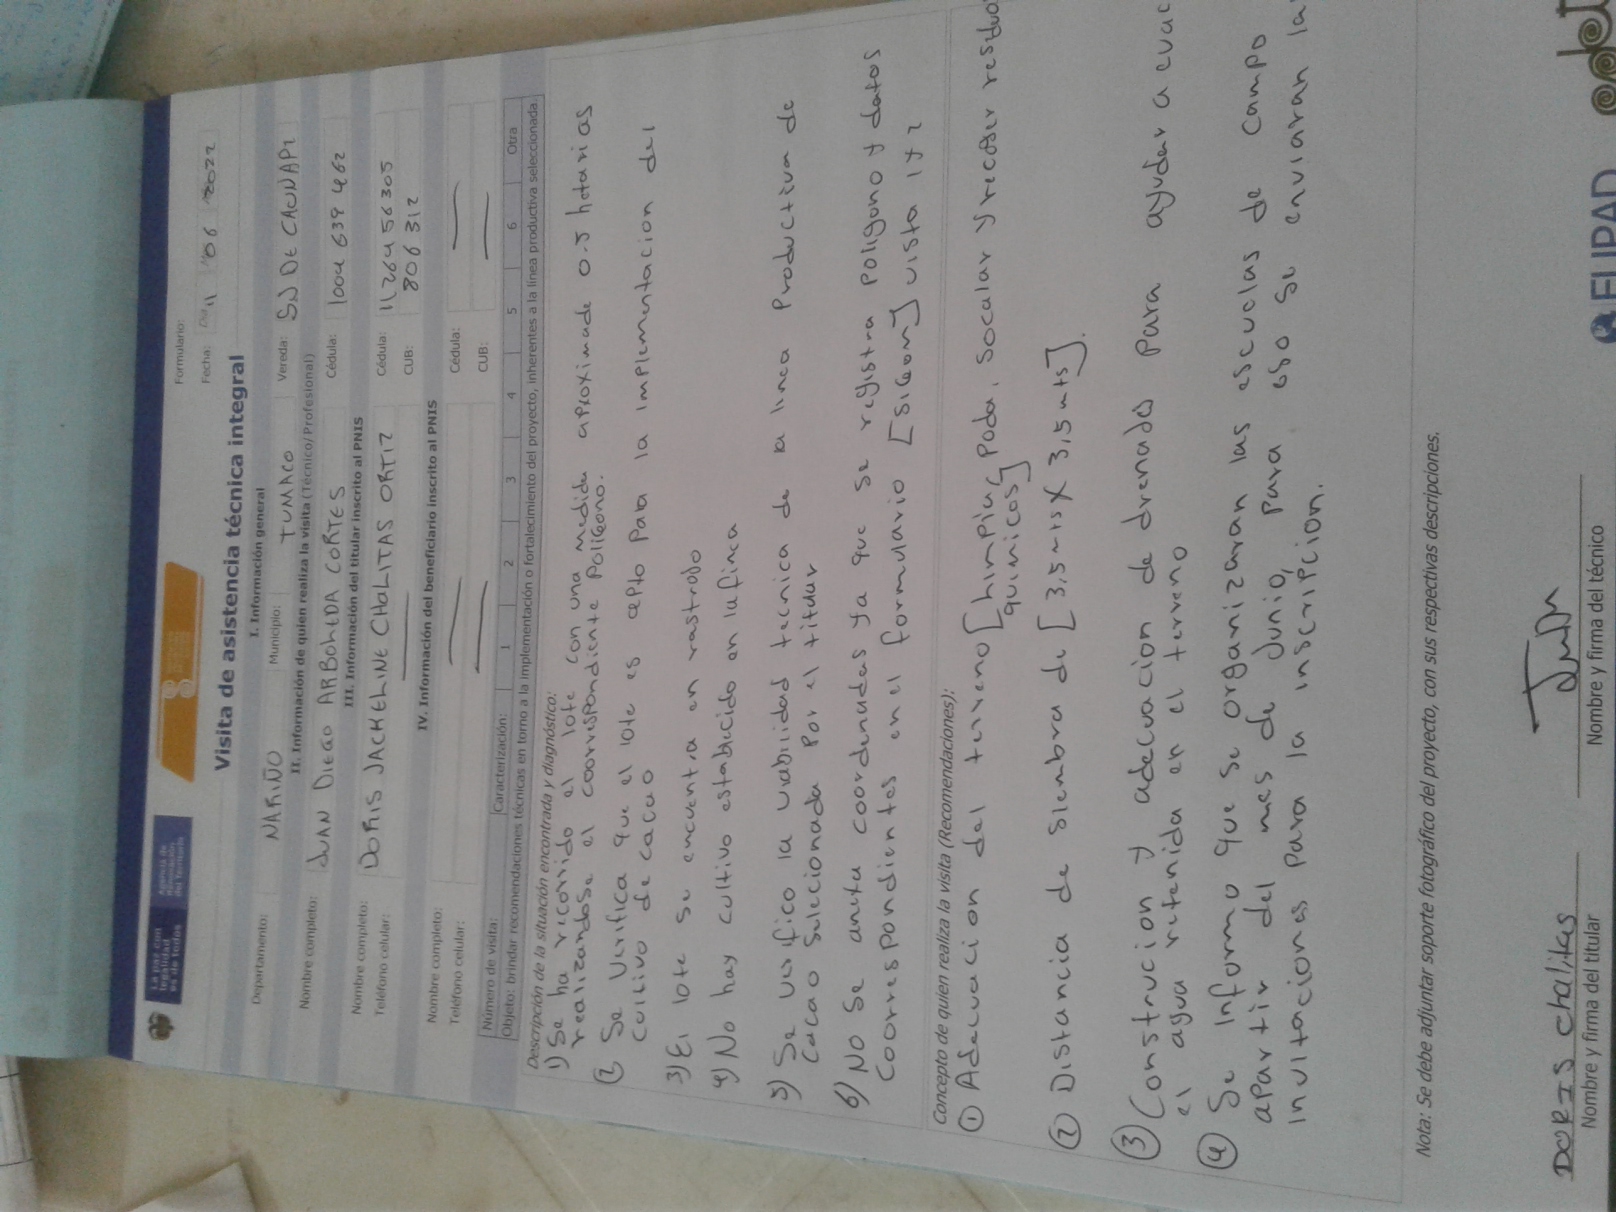 La paz con
legalidad
es de todos
Agencia de
Renovación
del Territorio
Formulario:
Visita de asistencia técnica integral
Fecha: Día 11 06 2022
I. Información general
Departamento: NARIÑO Municipio: TUMACO Vereda: SJ DE CAUNAPI
II. Información de quien realiza la visita (Técnico/Profesional)
Nombre completo: JUAN DIEGO ARBOLEDA CORTES Cédula: 1004 639 462
III. Información del titular inscrito al PNIS
Nombre completo: DORIS JACKELINE CHALITAS ORTIZ Cédula: 11264 56305
Teléfono celular: CUB: 806 312
IV. Información del beneficiario inscrito al PNIS
Nombre completo: Cédula:
Teléfono celular: CUB:
Número de visita: Caracterización: 1 2 3 4 5 6 Otra
Objeto: brindar recomendaciones técnicas en torno a la implementación o fortalecimiento del proyecto, inherentes a la línea productiva seleccionada.
Descripción de la situación encontrada y diagnóstico:
1) Se ha ricorrido el lote con una medida aproximade 0.5 hetarias
realizandose el coorrespondiente Poligono.
2 Se Verifica que el lote es apto para la implementacion del
cultivo de cacao
3) El lote se encuentra en rastrojo
4) No hay cultivo establecido en la finca
5) Se verifico la viabilidad tecnica de la linea Productiva de
Cacao Selecionada Por el titular
6) No Se aneta coordenadas ya que se registra poligono y datos
Coorrespondientes en el formulario [Sigeom] vista 1 y 2
Concepto de quien realiza la visita (Recomendaciones):
① Adecuacion del terreno [Limpiac, poda, socalar y recoger residuo
quimicos]
② Distancia de siembra de [3,5 mts X 3,5 mts].
③ Construcion y adecuacion de drenados Para ayudar a evac
el agua retenida en el terreno
④ Se informo que se organizaran las escuelas de campo
apartir del mes de Junio, para eso se enviaran la
invitaciones para la inscripcion.
Nota: Se debe adjuntar soporte fotográfico del proyecto, con sus respectivas descripciones.
DORIS chalitas
Nombre y firma del titular
Nombre y firma del técnico
FUPAD